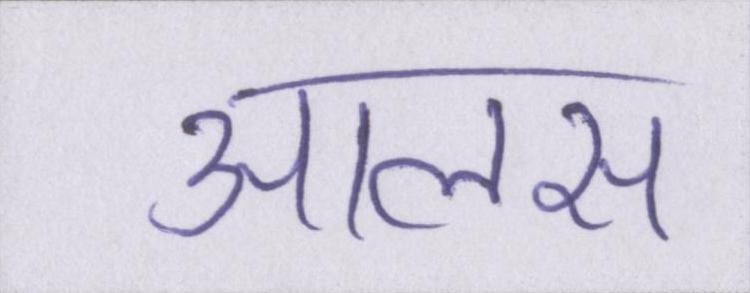 आलस